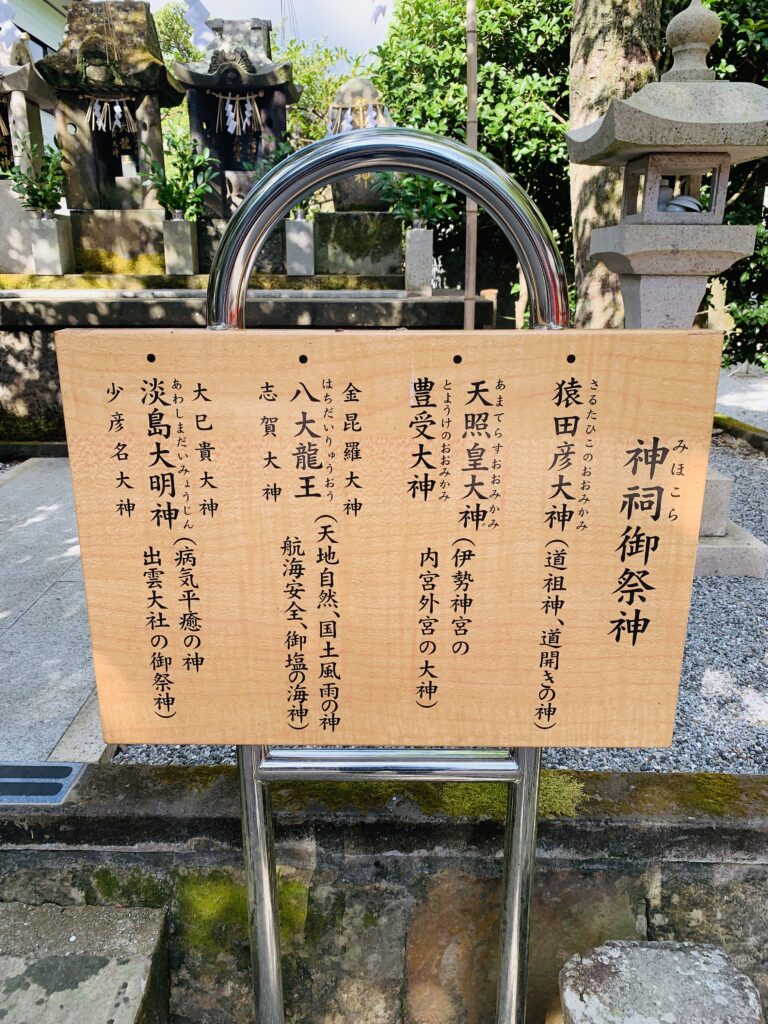 神祠御祭神
みほこら
・猿田彦大神(道祖神、道開きの神)
さるたひこのおおみかみ
・天照皇大神(伊勢神宮の
あまてらすおおみかみ
・豊受大神 内宮外宮の大神)
とようけのおおみかみ
金昆羅大神(天地自然、国土風雨の神
・八大龍王
はちだいりゅうおう
志賀大神 航海安全、御塩の海神)
大巳貴大神(病気平癒の神
・淡島大明神
あわしまだいみょうじん
少彦名大神 出雲大社の御祭神)